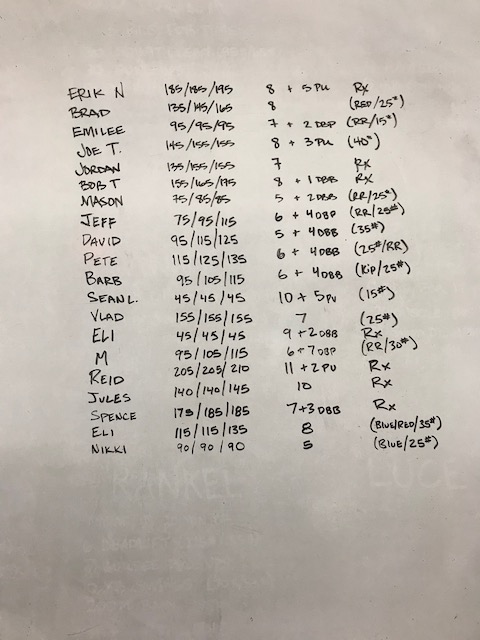 ERIK N 185/185/195 8 + 5 PU Rx
BRAD 135/145/165 8 (RED/25#)
EMILEE 95/95/95 7 + 2 DBP (RR/15#)
JOE T. 145/155/155 8 + 3PU (40#)
JORDAN 135/155/155 7 Rx
BOB T 155/165/175 8 + 1 DBB Rx
MASON 75/85/85 5 + 2DBB (RR/25#)
JEFF 75/95/115 6 + 4DBP (RR/25#)
DAVID 95/115/125 5 + 4DBB (35#)
PETE 115/125/135 6 + 4DBB (25#/RR)
BARB 95/105/115 6 + 4DBB (Kip/25#)
SEAN L. 45/45/45 10 + 5PU (15#)
VLAD 155/155/155 7 (25#)
ELI 45/45/45 9 + 2DBB Rx
M 95/105/115 6 + 7DBP (RR/30#)
REID 205/205/210 11 + 2PU Rx
JULES 140/140/145 10 Rx
SPENCE 175/185/185 7 + 3DBB Rx
ELI 115/115/135 8 (BLUE/RED/35#)
NIKKI 90/90/90 5 (BLUE/25#)